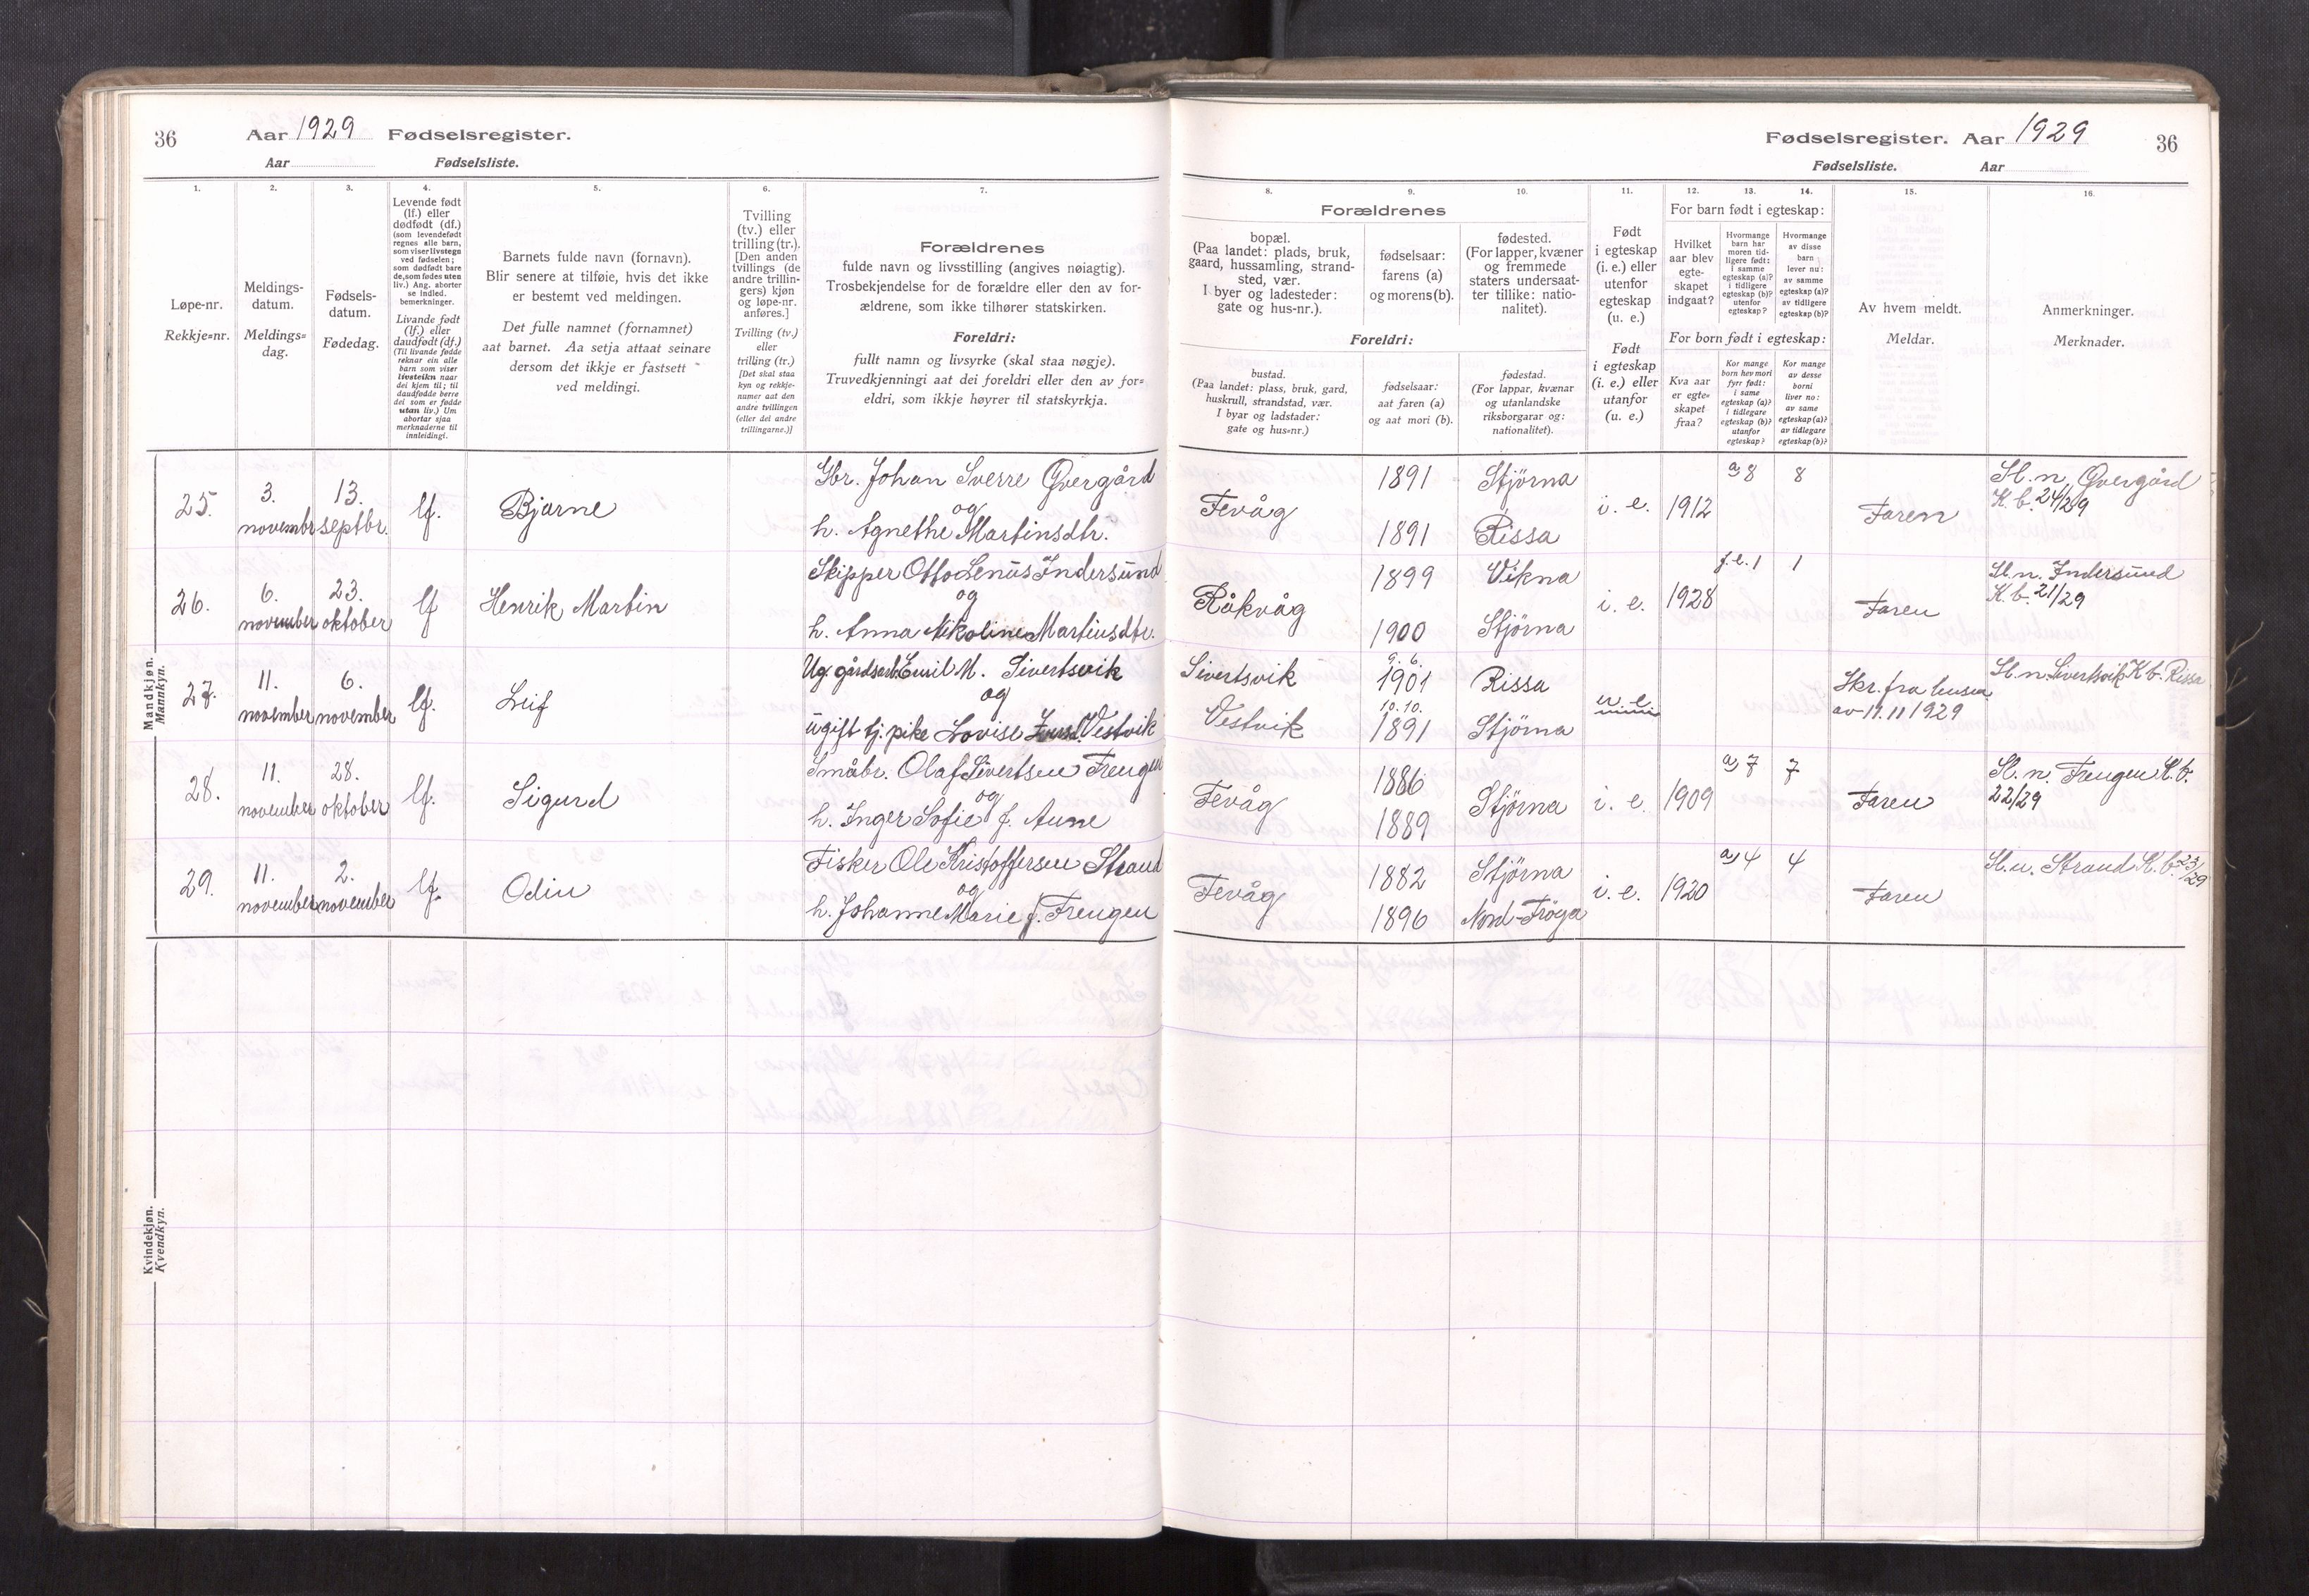 36 Aar 1929 Fødselsregister.
Aar Fødselsliste.
1.
2.
3.
4.
5.
6.
7.
Løpe-nr.
Rekkje=nr.
Meldings-
datum.
Meldings=
dag.
Fødsels-
datum.
Fødedag.
Levende født
(lf.) eller
dødfødt (df.)
(som levendefødt
regnes alle barn,
som viser livstegn
ved fødselen;
som dødfødt bare
de, som fødes uten
liv.) Ang. aborter
se indled.
bemerkninger.
Livande født
(lf.) eller
daudfødt (df.)
(Til livande fødde
reknar ein alle
barn som viser
livsteikn naar
dei kjem til; til
daudfødde berre
dei som er fødde
utan liv.) Um
abortar sjaa
merknaderne til
innleidingi.
Barnets fulde navn (fornavn).
Blir senere at tilføie, hvis det ikke
er bestemt ved meldingen.
Det fulle namnet (fornamnet)
aat barnet. Aa setja attaat seinare
dersom det ikkje er fastsett
ved meldingi.
Tvilling
(tv.) eller
trilling (tr.).
[Den anden
tvillings (de
andre trillin-
gers) kjøn
og løpe-nr.
anføres.]
Tvilling (tv.)
eller
trilling (tr.)
[Det skal staa
kyn og rekkje-
numer aat den
andre tvillingen
(eller dei andre
trillingarne.)]
Forældrenes
fulde navn og livsstilling (angives nøiagtig).
Trosbekjendelse for de forældre eller den av for-
ældrene, som ikke tilhører statskirken.
Foreldri:
fullt namn og livsyrke (skal staa nøgje).
Truvedkjenningi aat dei foreldri eller den av for=
eldri, som ikkje høyrer til statskyrkja.
Mandkjøn.
Mannkyn.
25.
3.
novembr
13.
septbr.
lf.
Bjarne
Gbr. Johan Sverre Øvergård
og
h. Agnethe Martinsdtr.
26.
6.
november
23.
oktober
lf
Henrik Martin
Skipper Otto Lenüs Indersünd
og
h. Anna Nikoline Martinsdtr.
27.
11.
november
6.
november
lf.
Leif
Ug. gårdsarb. Emil M. Sivertsvik
og
ügift tj. pike Lovise Vestvik
28.
11.
november
28.
oktober
lf.
Sigurd
Småbr. Olaf Sivertsen Frengen
og
h. Inger Sofie f. Aune
29.
11.
november
2.
november
lf.
Odin
Fisker Ole Kristoffersen Strand
og
h. Johanne Marie f. Frengen
Kvindekjøn.
Kvendkyn.
Fødselsregister. Aar 1929 36
Fødselsliste. Aar
8.
9.
10.
11.
12.
13.
14.
15.
16.
Forældrenes
bopæl.
(Paa landet: plads, bruk,
gaard, hussamling, strand-
sted, vær.
I byer og ladesteder:
gate og hus-nr.).
fødselsaar:
farens (a)
og morens (b).
fødested.
(For lapper, kvæner
og fremmede
staters undersaat-
ter tillike: natio-
nalitet).
Foreldri:
bustad.
(Paa landet: plass, bruk, gard,
huskrull, strandstad, vær.
I byar og ladstader:
gate og hus=nr.)
fødselsaar:
aat faren (a)
og aat mori (b).
fødestad.
(For lappar, kvænar
og utanlandske
riksborgarar og:
nationalitet).
Født
i egteskap
(i. e.) eller
utenfor
egteskap
(u. e.)
Født
i egteskap
(i. e.) eller
utanfor
(u. e.)
For barn født i egteskap:
Hvilket
aar blev
egte-
skapet
indgaat?
Hvormange
barn har
moren tid-
ligere født:
i samme
egteskap (a)?
i tidligere
egteskap (b)?
utenfor
egteskap?
Hvormange
av disse
barn
lever nu:
av samme
egteskap (a)?
av tidligere
egteskap (b)?
For born født i egteskap:
Kva aar
er egte=
skapet
fraa?
Kor mange
born hev mori
fyrr født:
i same
egteskap (a)?
i tidlegare
egteskap (b)?
utanfor
egteskap?
Kor mange
av desse
borni
liver no:
av same
egteskap (a)?
av tidlegare
egteskap (b)?
Av hvem meldt.
Meldar.
Anmerkninger.
Merknader.
Fevåg
1891
1891
Stjörna
Rissa
i. e.
1912
a) 8
8
Faren
Sl. n. Øvergård
K. b. 24/29
Råkvåg
1899
1900
Vikna
Stjörna
i. e.
1928
f. e. 1
1
Faren
Sl. n. Indersünd
K. b. 21/29
Sivertsvik
Vestvik
9. 6.
1901
10. 10.
1891
Rissa
Stjörna
u. e.
Skr. fra
av 11. 11 1929
Sl. n. Sivertsvik K. b. Rissa
Fevåg
1886
1889
Stjörna
i. e.
1909
a) 7
7
Faren
Sl. n. Frengen K. b.
22/29
Fevåg
1882
1896
Stjörna
Nord-Fröya
i. e.
1920
a) 4
4
Faren
Sl. n. Strand K. b. 23/29